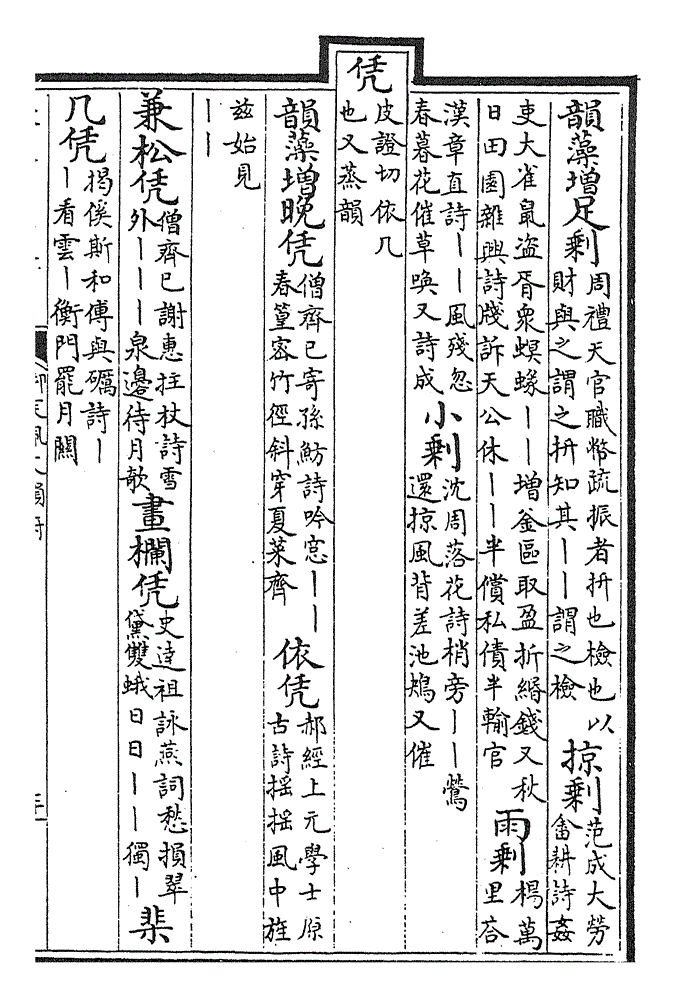 韻藻增足剩
周禮天官職幣疏振者抍也檢也以
財與之謂之抍知其丨丨謂之檢
掠剩
范成大勞
畬耕詩姦
吏大雀鼠盗胥衆螟蝝丨丨增釜區取盈折緡錢又秋
日田園雜興詩牋訴天公休丨丨半償私債半輸官
雨剩
楊萬
里荅
漢章直詩丨丨風殘忽
春暮花催草喚又詩成
小剩
沈周落花詩梢旁丨丨鶯
還掠風背差池鴆又催
凭
皮證切依几
也又蒸韻
韻藻增晚凭
僧齊已寄孫魴詩吟窓丨丨
春篁容竹徑斜穿夏菜齊
依凭
郝經上元學士原
古詩揺揺風中旌
兹始見
丨丨
兼松凭
僧齊已謝惠拄杖詩雪
外丨丨丨泉邊待月欹
畫欄凭
史逹祖詠燕詞愁損翠
黛雙蛾日日丨丨獨丨
棐
几凭
揭傒斯和傅與礪詩丨
丨看雲丨衡門罷月關